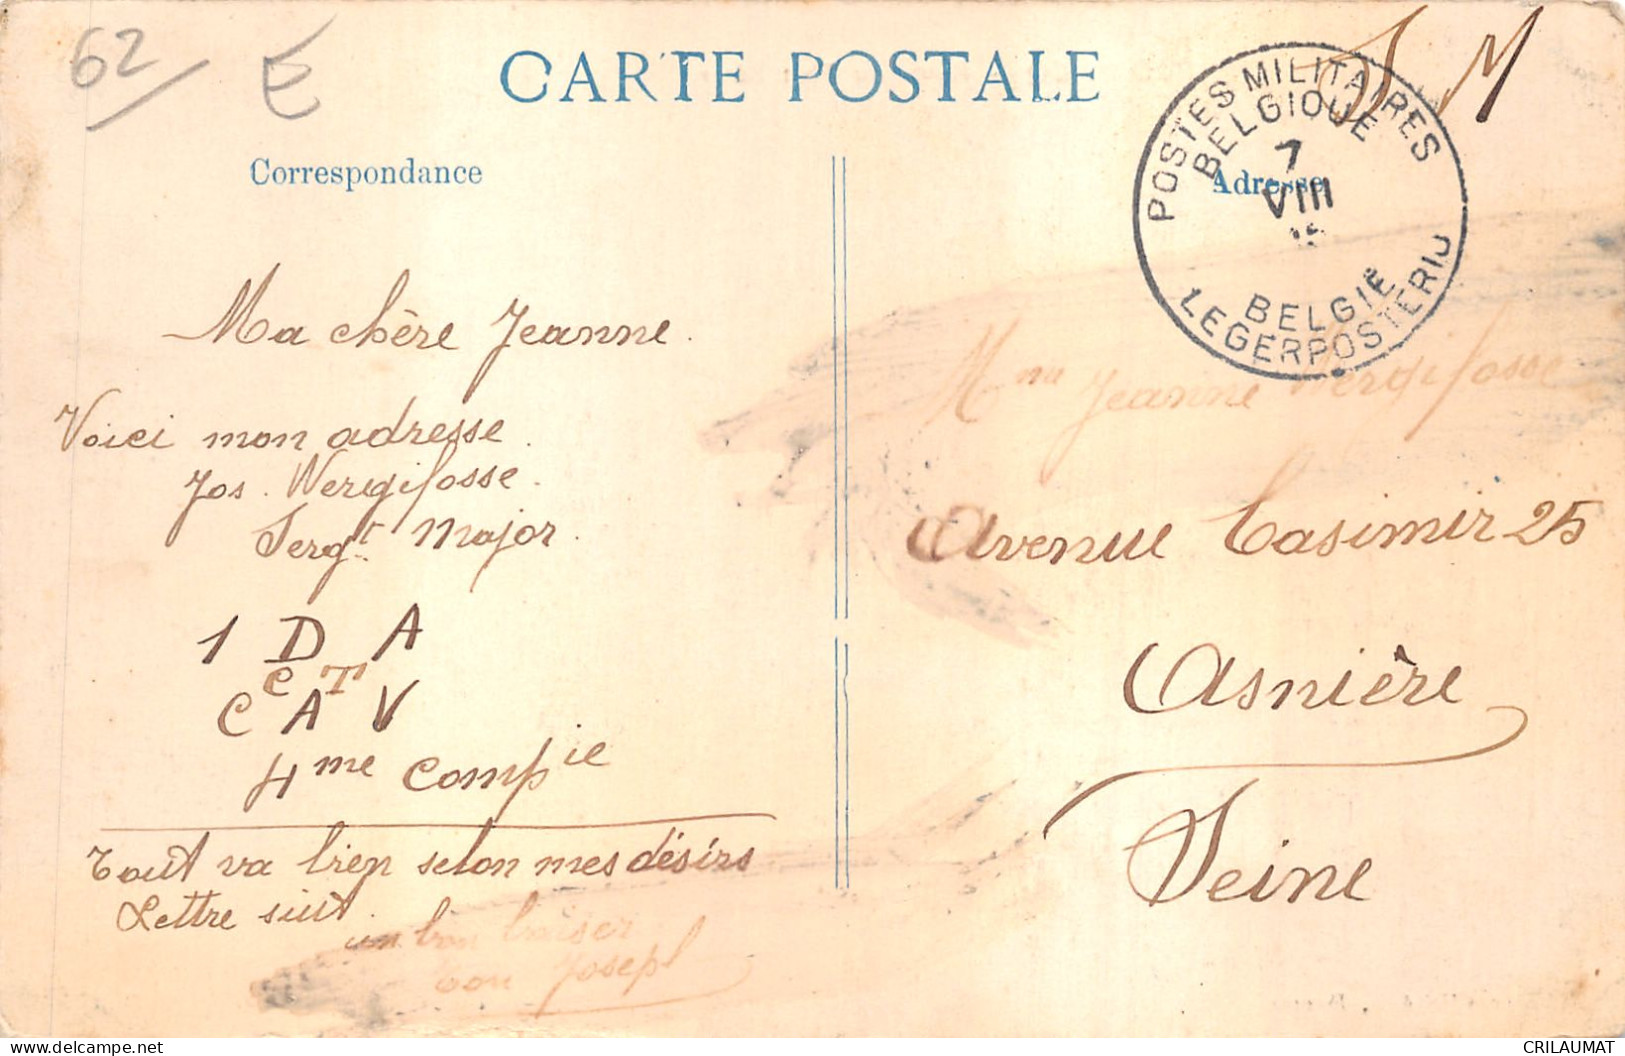 62
CARTE POSTALE
S M
POSTES MILITAIRES
BELGIQUE
7
VIII
BELGIË
LEGERPOSTERIJ
Correspondance
Adresse
Ma chère Jeanne.
Voici mon adresse.
Jos. Wergifosse.
Sergt Major.
1 D A
C T
C A V
4me Compie
Tout va bien selon mes désirs
Lettre suit.
un bon baiser
ton Joseph
Jeanne Wergifosse
Avenue Casimir 25
Asnière
Seine
CRILAUMAT